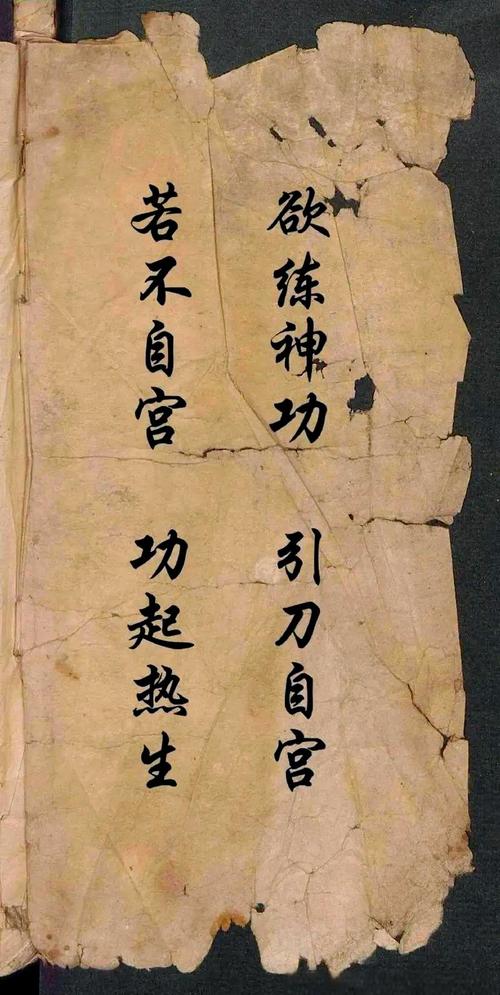 欲练神功 引刀自宫
若不自宫 功起热生